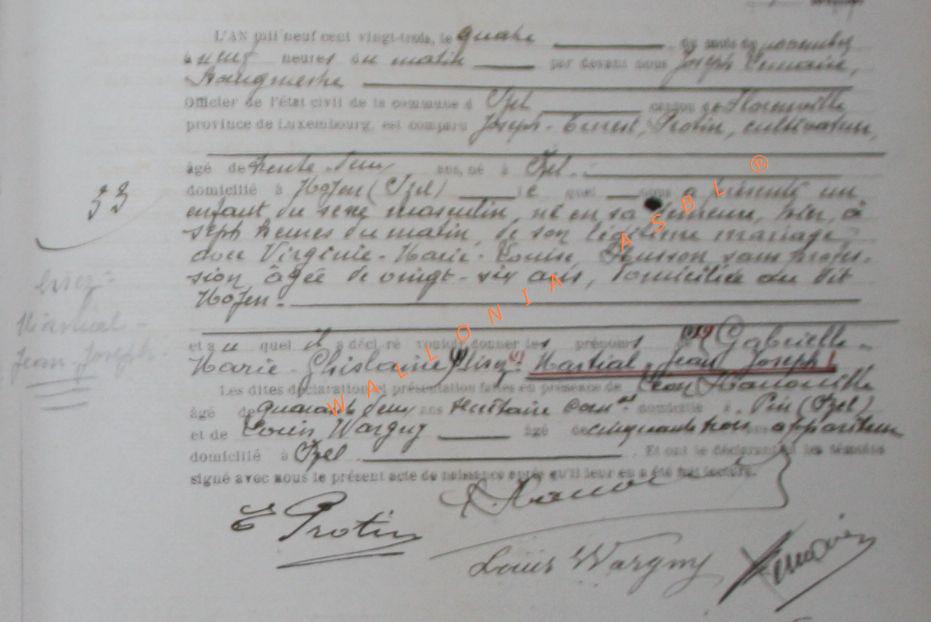 L'AN mil neuf cent vingt-trois, le quatre du mois de novembre
à neuf heures du matin par devant nous Joseph Lemaire,
Bourgmestre
Officier de l'état civil de la commune d'Izel canton de Florenville
province de Luxembourg, est comparu Joseph-Ernest, Protin, cultivateur,
âgé de trente deux ans, né à Izel.
domicilié à Moyen (Izel) le quel nous a présenté un
enfant du sexe masculin, né en sa demeure, hier, à
sept heures du matin, de son légitime mariage
avec Virginie-Marie-Louise sans profes-
sion, âgée de vingt-six ans, domiciliée au dit
Moyen.
33
Lisez:
Martial-
Jean-Joseph
et au quel il a déclaré vouloir donner les prénoms de Gabrielle-
Marie-Ghislaine Lisez: Martial-Jean Joseph!
Les dites déclaration et présentation faites en présence de Léon
âgé de quarante deux ans secrétaire comal domicilié à Pin (Izel)
et de Louis Wargny âgé de cinquante trois ans appariteur
domicilié à Izel Et ont le déclarant et les témoins
signé avec nous le présent acte de naissance après qu'il leur en a été fait lecture.
E Protin
Louis Wargny
Lemaire
WALLONIA ASBL ®